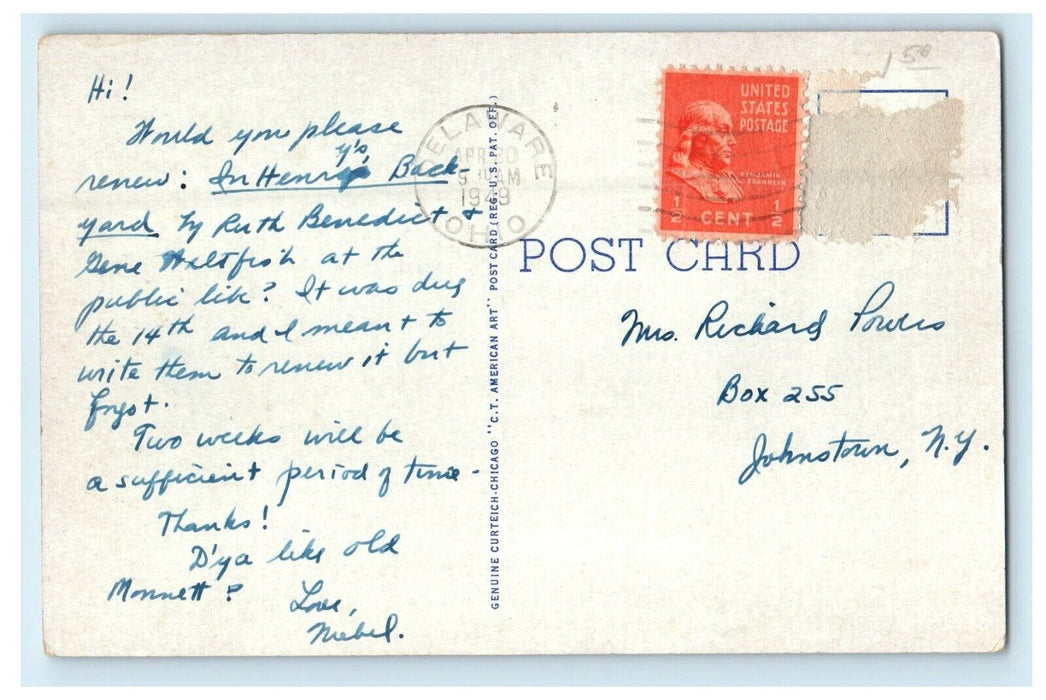 1 50
Hi!
Would you please
y's
renew: In Henry Back-
yard by Ruth Benedict &
Gene Weltfish at the
public lib? It was due
the 14th and I meant to
write them to renew it but
forgot.
Two weeks will be
a sufficient period of time-
Thanks!
D'ya like old
Monnett?
Love,
Mabel.
DELAWARE
APR 20
AM
1949
OHIO
GENUINE CURTEICH-CHICAGO "C.T. AMERICAN ART" POST CARD (REG. U.S. PAT. OFF.)
UNITED
STATES
POSTAGE
BENJAMIN
FRANKLIN
1/2 CENT 1/2
POST CARD
Mrs. Richard Powers
Box 255
Johnstown, N.Y.